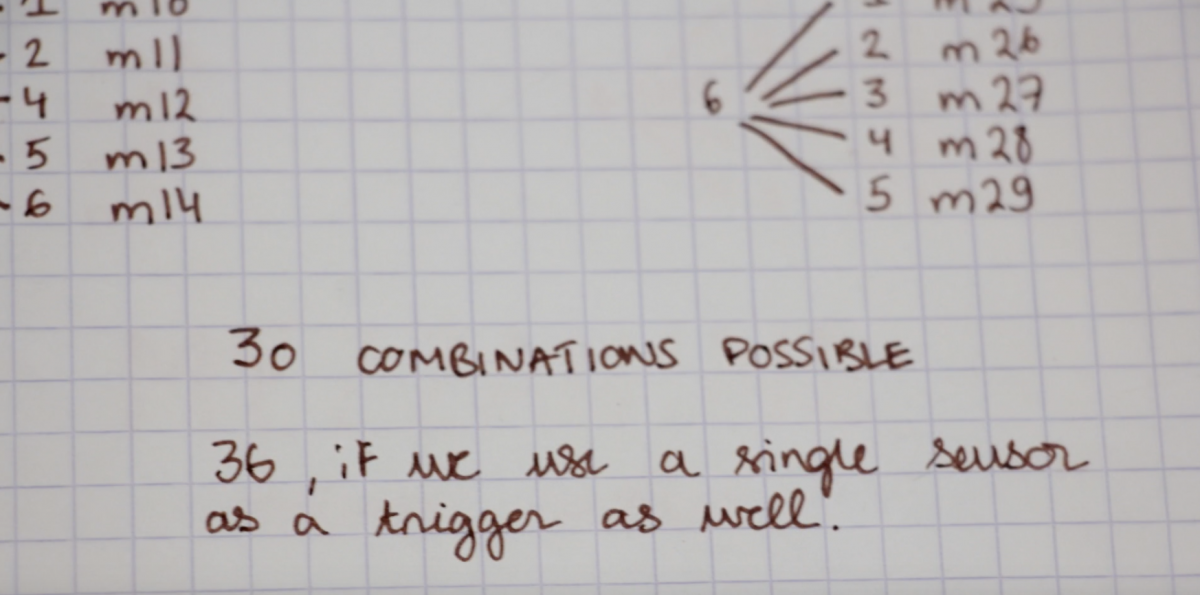 1 m10
2 m11
4 m12
5 m13
6 m14
1 m25
2 m26
6 3 m27
4 m28
5 m29
30 COMBINATIONS POSSIBLE
36, if we use a single sensor
as a trigger as well.